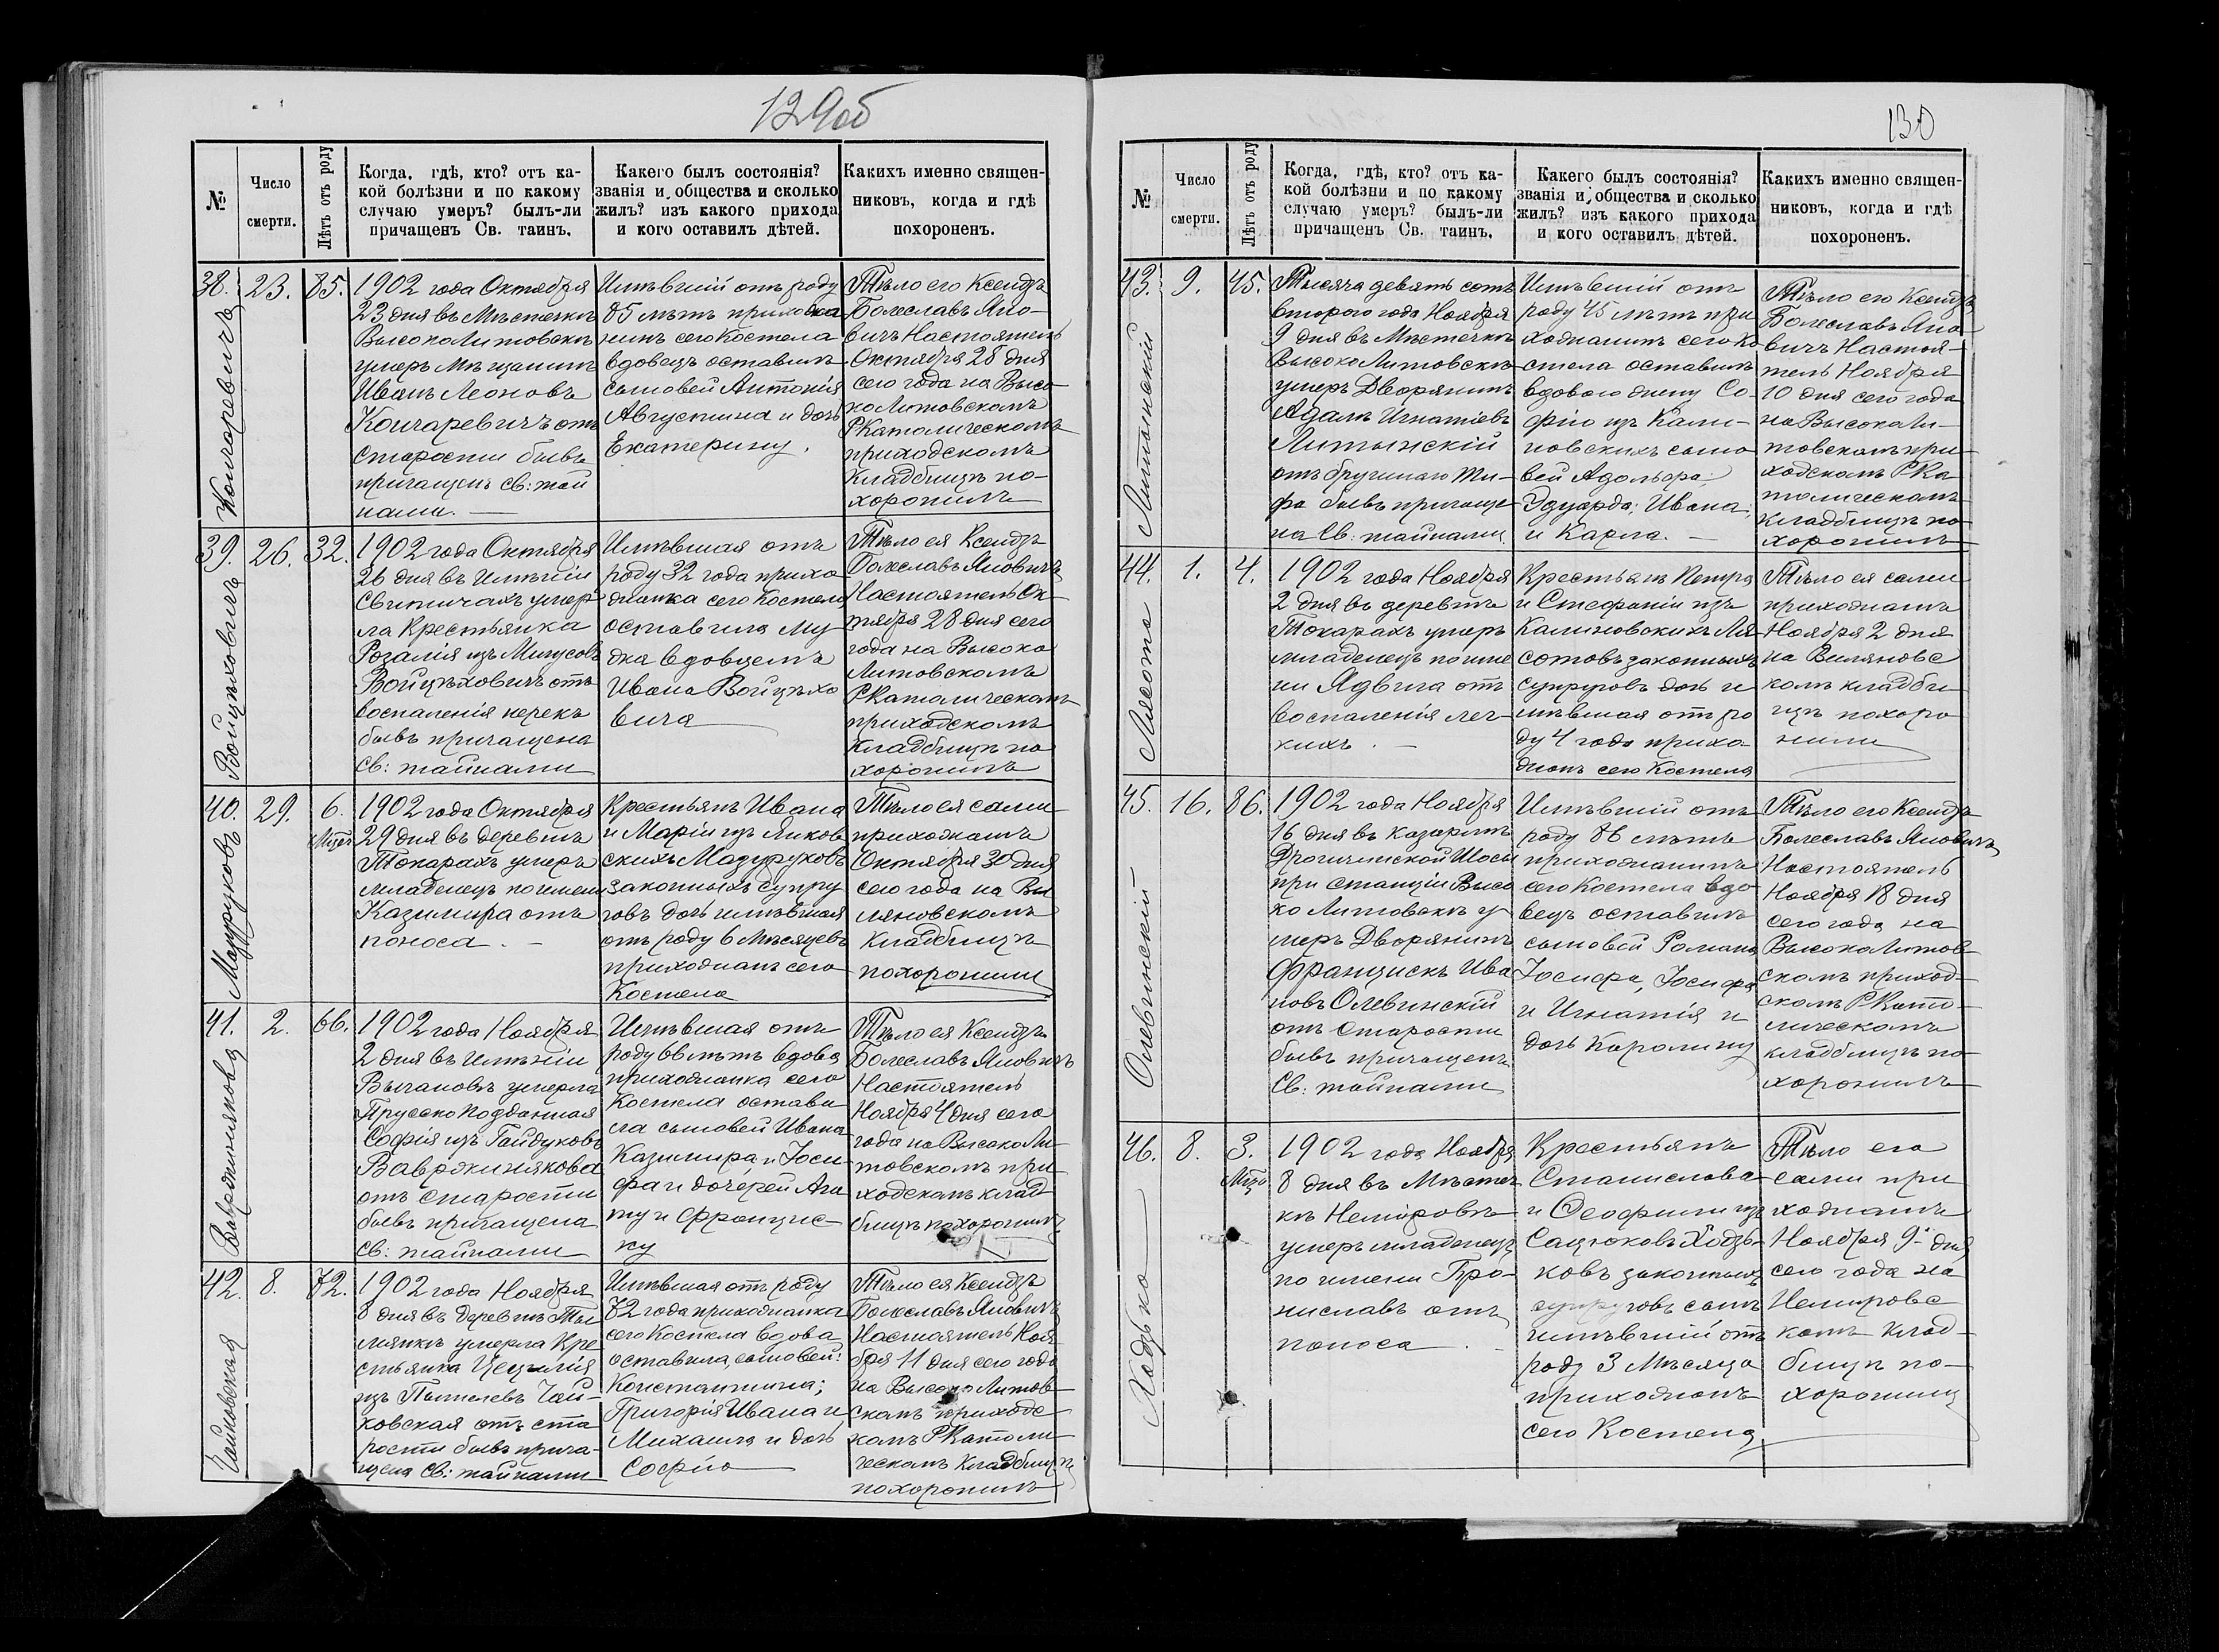 129об
№
Число
смерти.
Лѣтъ отъ роду
Когда, гдѣ, кто? отъ ка-
кой болѣзни и по какому
случаю умеръ? былъ-ли
причащенъ Св. таинъ.
Какего былъ состоянія?
званія и общества и сколько
жилъ? изъ какого прихода
и кого оставилъ дѣтей.
Какихъ именно священ-
никовъ, когда и гдѣ
похороненъ.
38.
Кончаревичъ
23.
85.
1902 года Октября
23 дня въ Мѣстечкѣ
ВысокоЛитовскѣ
умеръ Мѣщанинъ
Иванъ Леоновъ
Кончаревичъ отъ
старости бывъ
причащенъ Св: тай
нами. —
Имѣвшій отъ роду
85 лѣтъ прихожа
нинъ сего Костела
вдовецъ оставилъ
сыновей Антонія
Августина и дочь
Екатерину.
Тѣло его Ксендзъ
Болеславъ Яно-
вичъ Настоятель
Октября 28 дня
сего года на Высо
коЛитовскомъ
РКатолическомъ
приходскомъ
Кладбищѣ по-
хоронилъ
39.
Войцѣховичъ
26.
32.
1902 года Октября
26 дня въ Имѣніи
Свитичахъ умер
ла Крестьянка
Розалія изъ
Войцѣховичъ отъ
воспаленія
бывъ причащена
Св: тайнами
Имѣвшая отъ
роду 32 года прихо
дианка сего Костела
оставила му
жа вдовцемъ
Ивана Войцѣхо
вича
Тѣло ея Ксендзъ
Болеславъ Яновичъ
Настоятель Ок-
тября 28 дня сего
года на Высоко
Литовскомъ
РКатолическомъ
приходскомъ
Кладбищѣ по
хоронилъ
40.
Мазуруковъ
29.
6.
Мѣсяц
1902 года Октября
29 дня въ деревнѣ
Токарахъ умеръ
младенецъ по имени
Казимира отъ
поноса. —
Крестьянъ Ивана
и Маріи изъ Янков
скихъ Мазуруковъ
законныхъ супру
говъ дочь имѣвшая
отъ роду 6 Мѣсяцевъ
приходианъ сего
Костела
Тѣло ея сами
приходиане
Октября 30 дня
сего года на Ви
ляновскомъ
Кладбищѣ
похоронили
41.
Вавржинякова
2.
66.
1902 года Ноября
2 дня въ Имѣніи
Вычановѣ умерла
ПрусскоПодданная
Софія изъ Гайдуковъ
Вавржинякова
отъ старости
бывъ причащена
Св: тайнами
Имѣвшая отъ
роду 66 лѣтъ вдова
приходианка сего
Костела остави
ла сыновей Ивана
Казимира и Іоси
фа и дочерей Ага
ту и Францис-
ку
Тѣло ея Ксендзъ
Болеславъ Яновичъ
Настоятель
Ноября 4 дня сего
года на ВысокоЛи-
товскомъ при
ходскомъ клад
бищѣ похоронилъ
42.
Чайковская
8.
72.
1902 года Ноября
8 дня въ Деревнѣ Ту
мянкѣ умерла Кре
стьянка Цецилія
изъ Чай-
ковская отъ ста
рости бывъ прича-
щена Св: тайнами
Имѣвшая отъ роду
72 года приходианка
сего Костела вдова
оставила сыновей:
Константина;
Григорія Ивана и
Михаила и дочь
Софію
Тѣло ея Ксендзъ
Болеславъ Яновичъ
Настоятель Ноя
бря 11 дня сего года
на Высоко Литов-
скомъ приходс
комъ РКатоли-
ческомъ Кладбищѣ
похоронилъ
130
№
Число
смерти.
Лѣтъ отъ роду
Когда, гдѣ, кто? отъ ка-
кой болѣзни и по какому
случаю умеръ? былъ-ли
причащенъ Св. таинъ.
Какего былъ состоянія?
званія и общества и сколько
жилъ? изъ какого прихода
и кого оставилъ дѣтей.
Какихъ именно священ-
никовъ, когда и гдѣ
похороненъ.
43.
Литынскій
9.
45.
Тысяча девять сотъ
второго года Ноября
9 дня въ Мѣстечкѣ
ВысокоЛитовскѣ
умеръ Дворянинъ
Адамъ Игнатіевъ
Литынскій
отъ брушнаго Ти-
фа бывъ причаще
на Св: тайнами
Имѣвшій отъ
роду 45 лѣтъ при
ходианинъ сего Ко
стела оставилъ
вдовою жену Со-
фію изъ Кали-
новскихъ сыно
вей Адольфа;
Эдуарда; Ивана;
и Карла. —
Тѣло его Ксендзъ
Болеславъ Яно
вичъ Настоя-
тель Ноября
10 дня сего года
на ВысокоЛи-
товскомъ при-
ходскомъ РКа
толическомъ
Кладбищѣ по-
хоронилъ
44.
Лясота
1.
4.
1902 года Ноября
2 дня въ деревнѣ
Токарахъ умеръ
младенецъ по име
ни Ядвига отъ
воспаленія лег-
кихъ. —
Крестьянъ Петра
и Стефаніи изъ
Калиновскихъ Ля-
сотовъ законныхъ
супруговъ дочь и
мѣвшая отъ ро
ду 4 года прихо-
дианъ сего Костела
Тѣло ея сами
приходиане
Ноября 2 дня
на Виляновс
комъ кладби
щѣ похоро
нили
45.
Олевинскій
16.
86.
1902 года Ноября
16 дня въ казармѣ
Дрогичинской Шосы
при станціи Высо
ко Литовскѣ у
меръ Дворянинъ
Францискъ Ива
новъ Олевинскій
отъ старости
бывъ причащенъ
Св: тайнами
Имѣвшій отъ
роду 86 лѣтъ
приходианинъ
сего Костела вдо
вецъ оставилъ
сыновей Романа
Іосифа, Іосифа
и Игнатія и
дочь Каролину
Тѣло его Ксендзъ
Болеславъ Яновичъ
Настоятель
Ноября 18 дня
сего года на
ВысокоЛитов
скомъ приход-
скомъ РКато-
лическомъ
кладбищѣ по-
хоронилъ
46.
Ходзько
8.
3.
Мѣся
1902 года Ноября
8 дня въ Мѣстеч
кѣ Немировѣ
умеръ младенецъ
по имени Бро-
ниславъ отъ
поноса.
Крестьянъ
Станислова
и Феофили изъ
Сацюковъ Ходзь-
ковъ законныхъ
супруговъ сынъ
имѣвшій отъ
роду 3 Мѣсяца
приходианъ
сего Костела
Тѣло его
сами при
ходиане
Ноября 9 дня
сего года на
Немировс
комъ клад-
бищѣ по-
хоронили